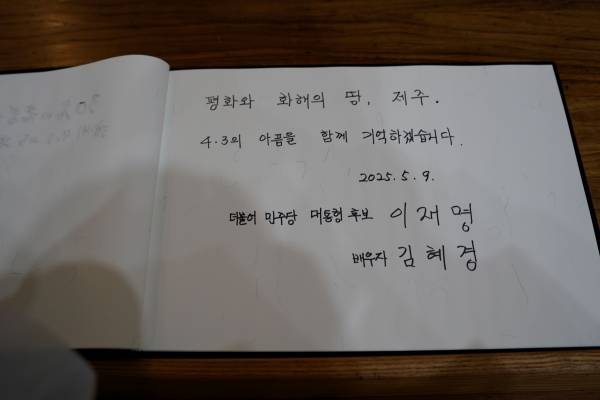 평화와 화해의 땅, 제주.
4.3의 아픔을 함께 기억하겠습니다.
2025.5.9.
더불어 민주당 대통령 후보 이재명
배우자 김혜경